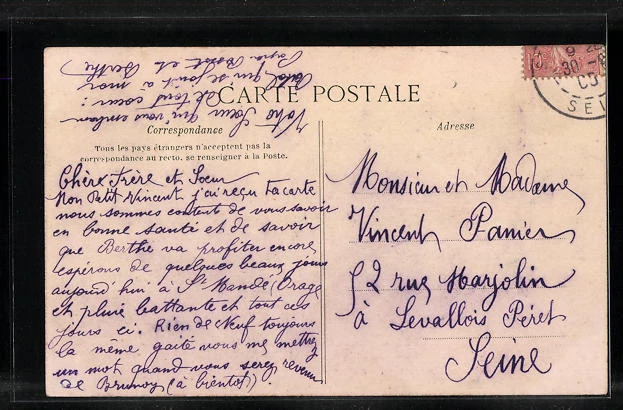 CARTE POSTALE
Correspondance
Tous les pays étrangers n'acceptent pas la
correspondance au recto, se renseigner à la Poste.
Chère Frère et Soeur
Mon Petit Vincent j'ai reçu ta carte
nous sommes content de vous savoir
en bonne santé et de savoir
que Berthe va profiter encore
espérons de quelques beaux jours
aujourd'hui à St Mandé Orage
et pluie battante et tout ces
jours ci. Rien de neuf toujours
la même gaité vous me mettrez
un mot quand vous serez revenu
de Brunoy (à bientôt).
Votre Soeur qui vous embrasse
de tout coeur:
qui se joint à moi
et Berthe
Adresse
Monsieur et Madame
Vincent Panier
52 rue Marjolin
à Levallois Péret
Seine
30
SEI